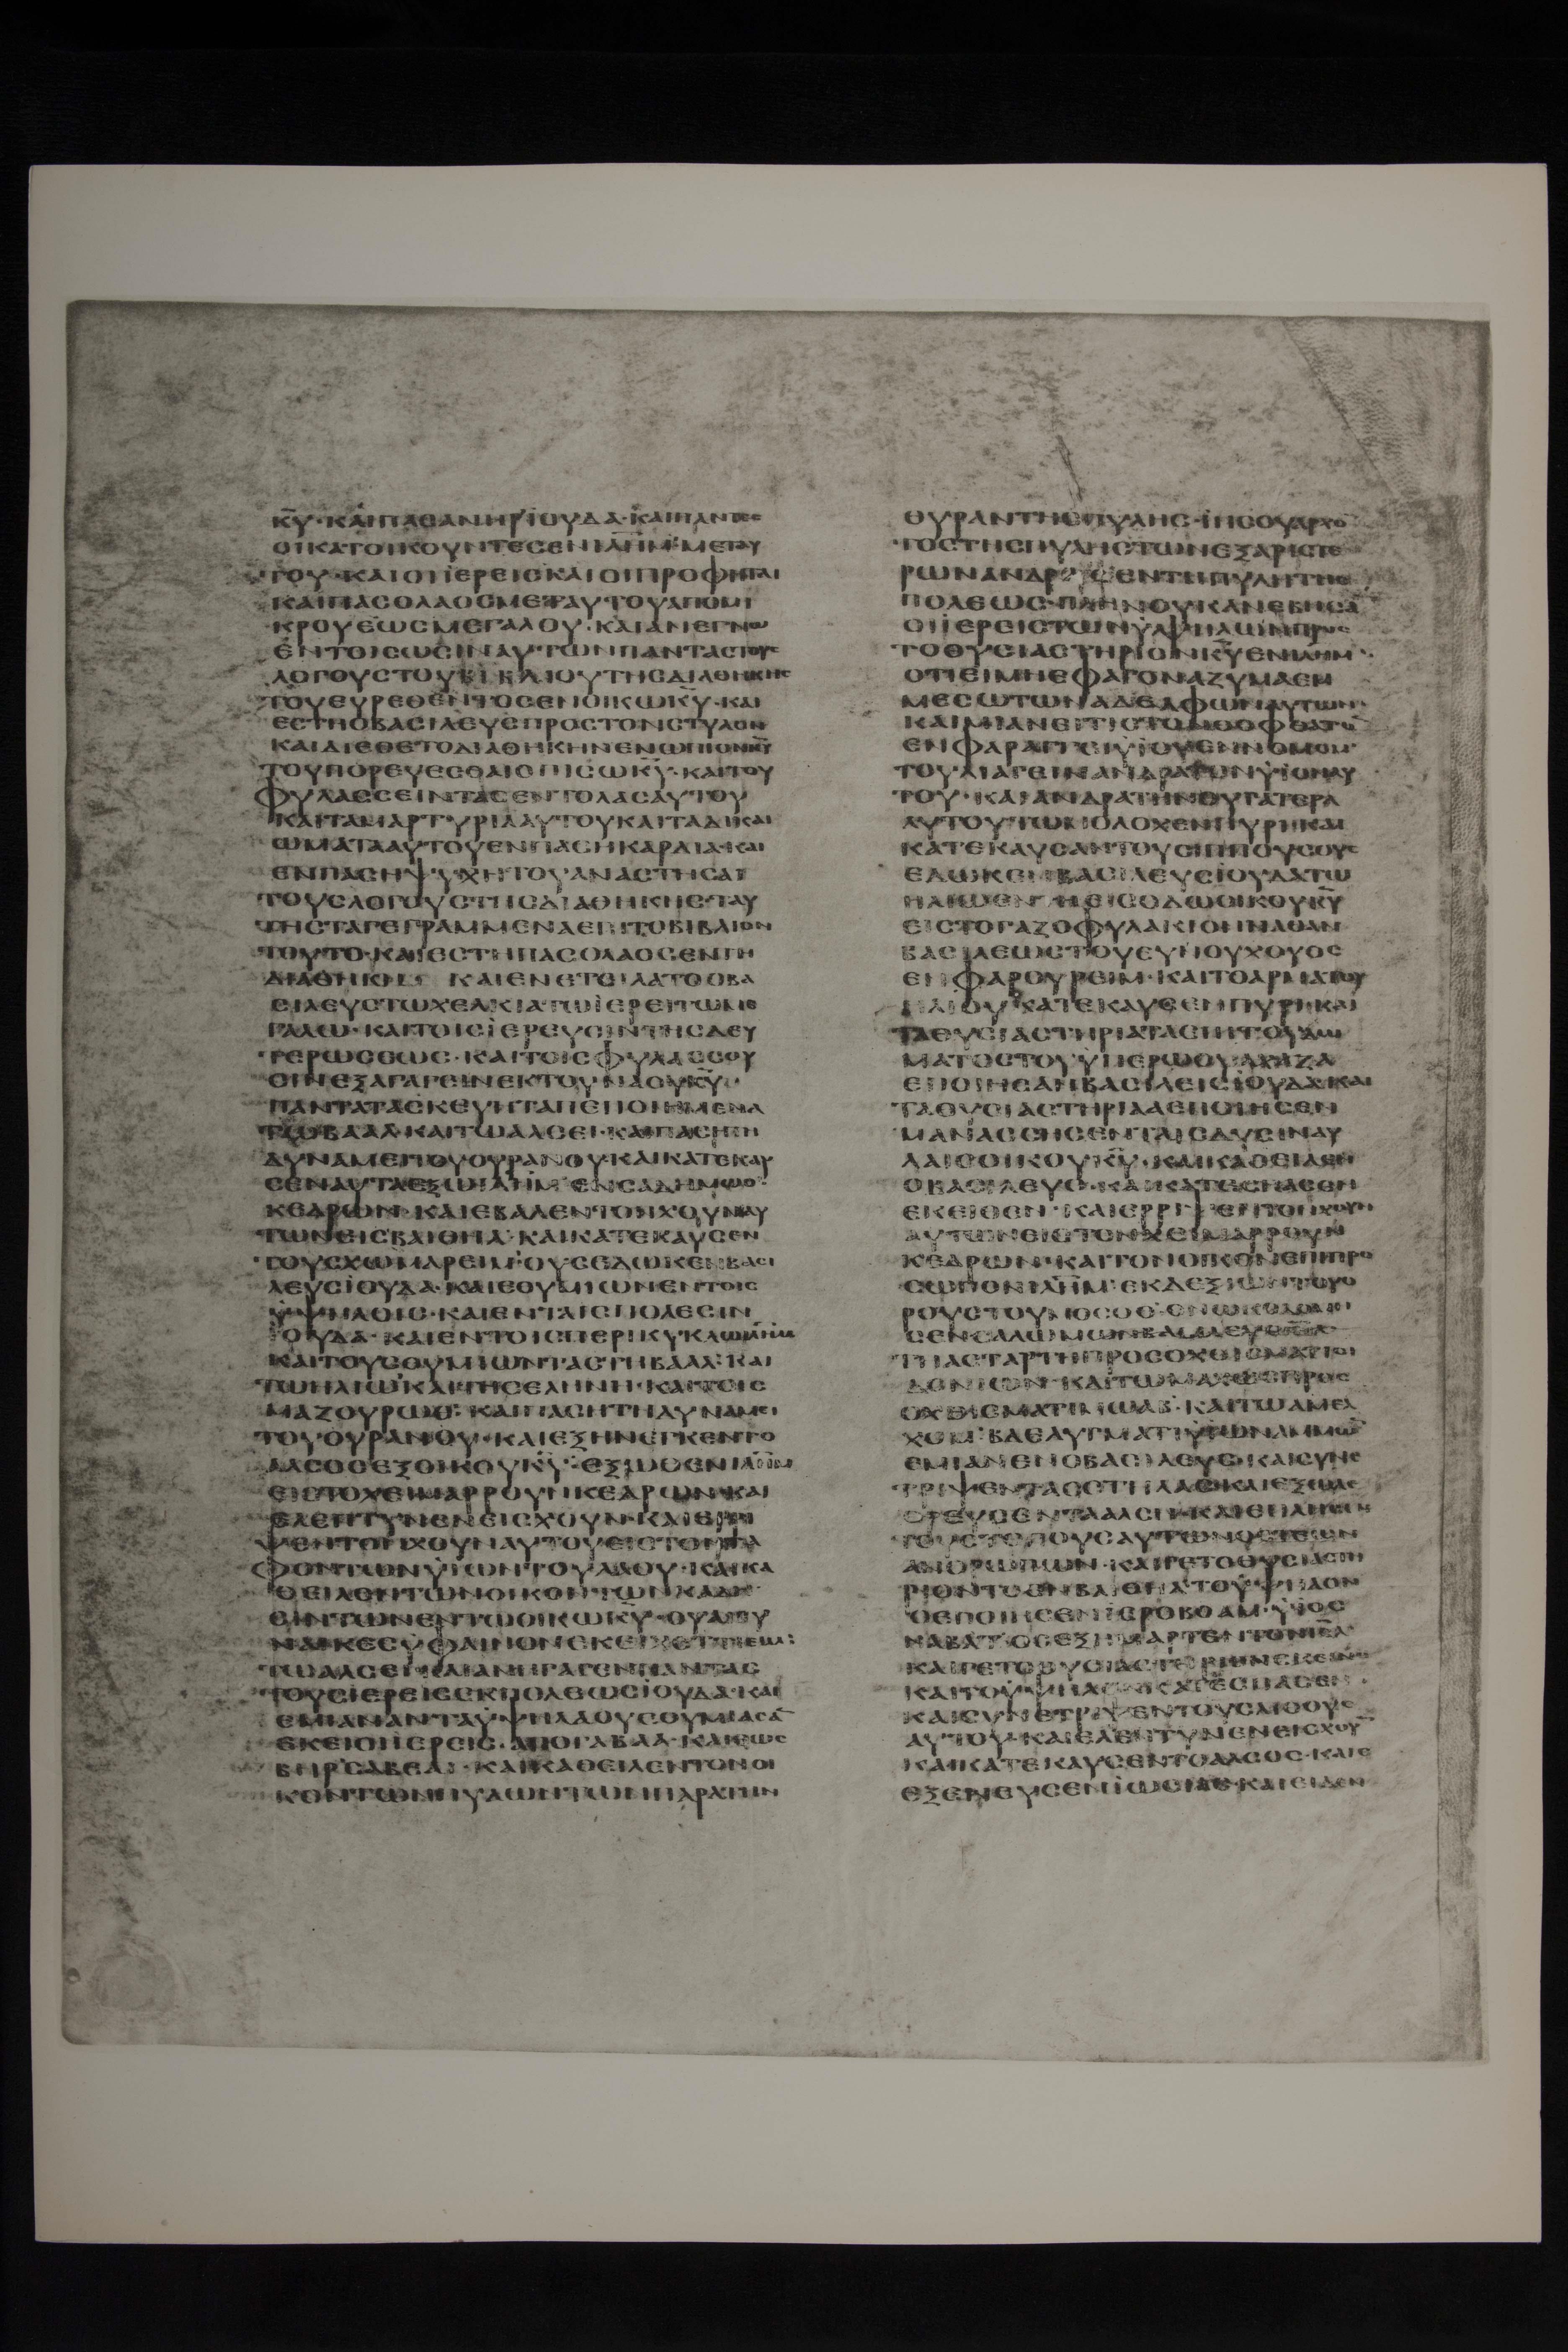 κ̅υ̅· και πας ανηρ ϊουδα· και παντες
οι κατοικουντες εν ϊλ̅η̅μ̅· μετ αυ
του· και οι ϊερεις και οι προφηται
και πας ο λαος μετ αυτου απο μι
κρου εως μεγαλου· και ανεγνω
εν τοις ωσιν αυτων παντας τους
λογους του βιβλιου της διαθηκης
του ευρεθεντος εν οικω κ̅υ̅· και
εστη ο βασιλευς προς τον στυλον
και διεθετο διαθηκην ενωπιον κ̅υ̅
του πορευεσθαι οπισω κ̅υ̅· και του
φυλασσειν τας εντολας αυτου
και τα μαρτυρια αυτου και τα δικαι
ωματα αυτου εν παση καρδια· και
εν παση ψυχη του αναστησαι
τους λογους της διαθηκης ταυ
της τα γεγραμμενα επι το βιβλιον
τουτο· και εστη πας ο λαος εν τη
διαθηκη· και ενετειλατο ο βα
σιλευς τω χελκια τω ϊερει τω με
γαλω· και τοις ϊερευσιν της δευ
τερωσεως· και τοις φυλασσου
σιν εξαγαγειν εκ του ναου κ̅υ̅·
παντα τα σκευη τα πεποιημενα
τω βααλ· και τω αλσει· και παση τη
δυναμει του ουρανου· και κατεκαυ
σεν αυτα εξω ϊλ̅η̅μ̅ εν σαδημωθ·
κεδρων· και εβαλεν τον χουν αυ
των εις βαιθηλ· και κατεκαυσεν
τους χωμαρειμ· ους εδωκεν βασι
λευς ϊουδα· και εθυμιων εν τοις
ϋψηλοις· και εν ταις πολεσιν
ϊουδα· και εν τοις περικυκλω ϊλ̅η̅μ̅
και τους θυμιωντας τη βααλ· και
τω ηλιω· και τη σεληνη· και τοις
μαζουρωθ· και παση τη δυναμει
του ουρανου· και εξηνεγκεν το
αλσος εξ οικου κ̅υ̅· εξωθεν ϊλ̅η̅μ̅
εις το χειμαρρουν κεδρων· και
ελεπτυνεν εις χουν· και ερρι
ψεν τον χουν αυτου εις τον τα
φον των ϋϊων του λαου· και κα
θειλεν των οικον των καδη
σιν των εν τω οικω κ̅υ̅· ου αι γυ
ναικες ϋφαινον εκει χεττιειμ·
τω αλσει· και ανηγαγεν παντας
τους ϊερεις εκ πολεως ϊουδα· και
εμιαναν τα ϋψηλα ου εθυμιασα̅
εκει οι ϊερεις· απο γαβαλ· και εως
βηρσαβεαι· και καθειλεν τον οι
κον των πυλων των παρα την
θυραν της πυλης· ιησου αρχο̅
τος της πυλης των εξ αριστε
ρων ανδρος εν τη πυλη της
πολεως· πλην ουκ ανεβησα̅
οι ϊερεις των ϋψηλων προς
το θυσιαστηριον κ̅υ̅ εν ϊλ̅η̅μ̅·
οτι ει μη εφαγον αζυμα εν
μεσω των αδελφων αυτων·
και μιανει τις το θοφθ α το̅
εν φαραγγει ϋϊου εννομομ·
του διαγειν ανδρα τον ϋϊον αυ
του· και ανδρα την θυγατερα
αυτου τω μολοχ εν πυρι· και
κατεκαυσαν τους ιππους ους
εδωκεν βασιλευς ϊουδα τω
ηλιω εν τη εισοδω οικου κ̅υ̅
εις το γαζοφυλακιον ναθαν
βασιλεως του ευνουχου ος
εν φαρουρειμ· και το αρμα του
ηλιου κατεκαυσεν πυρι· και
τα θυσιαστηρια τα επι του δω
ματος του ϋπερωου αχαζ α
εποιησαν βασιλεις ϊουδα· και
τα θυσιαστηρια α εποιησεν
μανασσης εν ταις δυσιν αυ
λαις οικου κ̅υ̅· και καθειλεν
ο βασιλευς· και κατεσπασεν
εκειθεν· και ερριψεν τον χουν
αυτων εις τον χειμαρρουν
κεδρων· και τον οικον επι προ
σωπον ϊλ̅η̅μ̅· εκ δεξιων του ο
ρους του μοσοθ· ον ωκοδομη
σεν σαλωμων βασιλευς ι̅η̅λ̅
τη ασταρτη προσοχθισματι σι
δονιων· και τω μαχως προς
οχθισματι μωαβ· και τω αμελ
χομ· βδελυγματι ϋϊων αμμω̅
εμιανεν ο βασιλευς· και συνε
τριψεν τας στηλας· και εξωλε
θρευσεν τα αλση· και επλησεν
τους τοπους αυτων οστεων
ανθρωπων· και γε το θυσιαστη
ριον το εν βαιθηλ το ϋψηλον
ο εποιησεν ϊεροβοαμ· ϋϊος
ναβατ ος εξημαρτεν τον ι̅η̅λ̅
και γε το θυσιαστηριον εκεινο
και το ϋψηλον κατεσπασεν·
και συνετριψεν τους λιθους
αυτου· και ελεπτυνεν εις χου̅
και κατεκαυσεν το αλσος· και ε
εξενευσεν ϊωσιας· και ειδεν